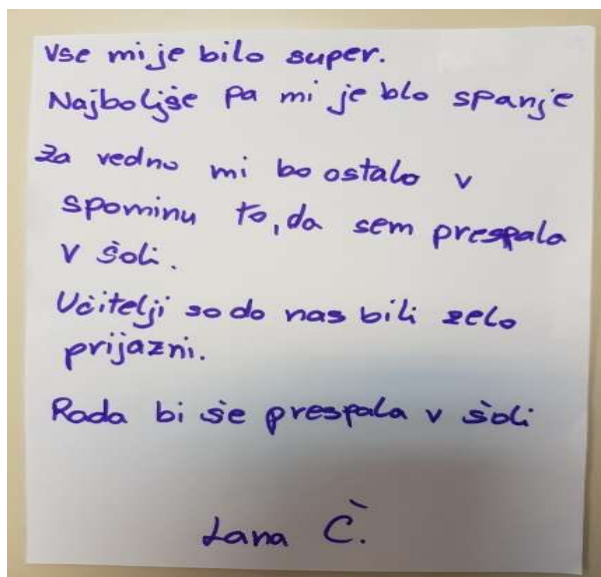 Vse mi je bilo super.
Najboljše pa mi je blo spanje
Za vedno mi bo ostalo v
spominu to, da sem prespala
v šoli.
Učitelji so do nas bili zelo
prijazni.
Rada bi še prespala v šoli
Lana Č.